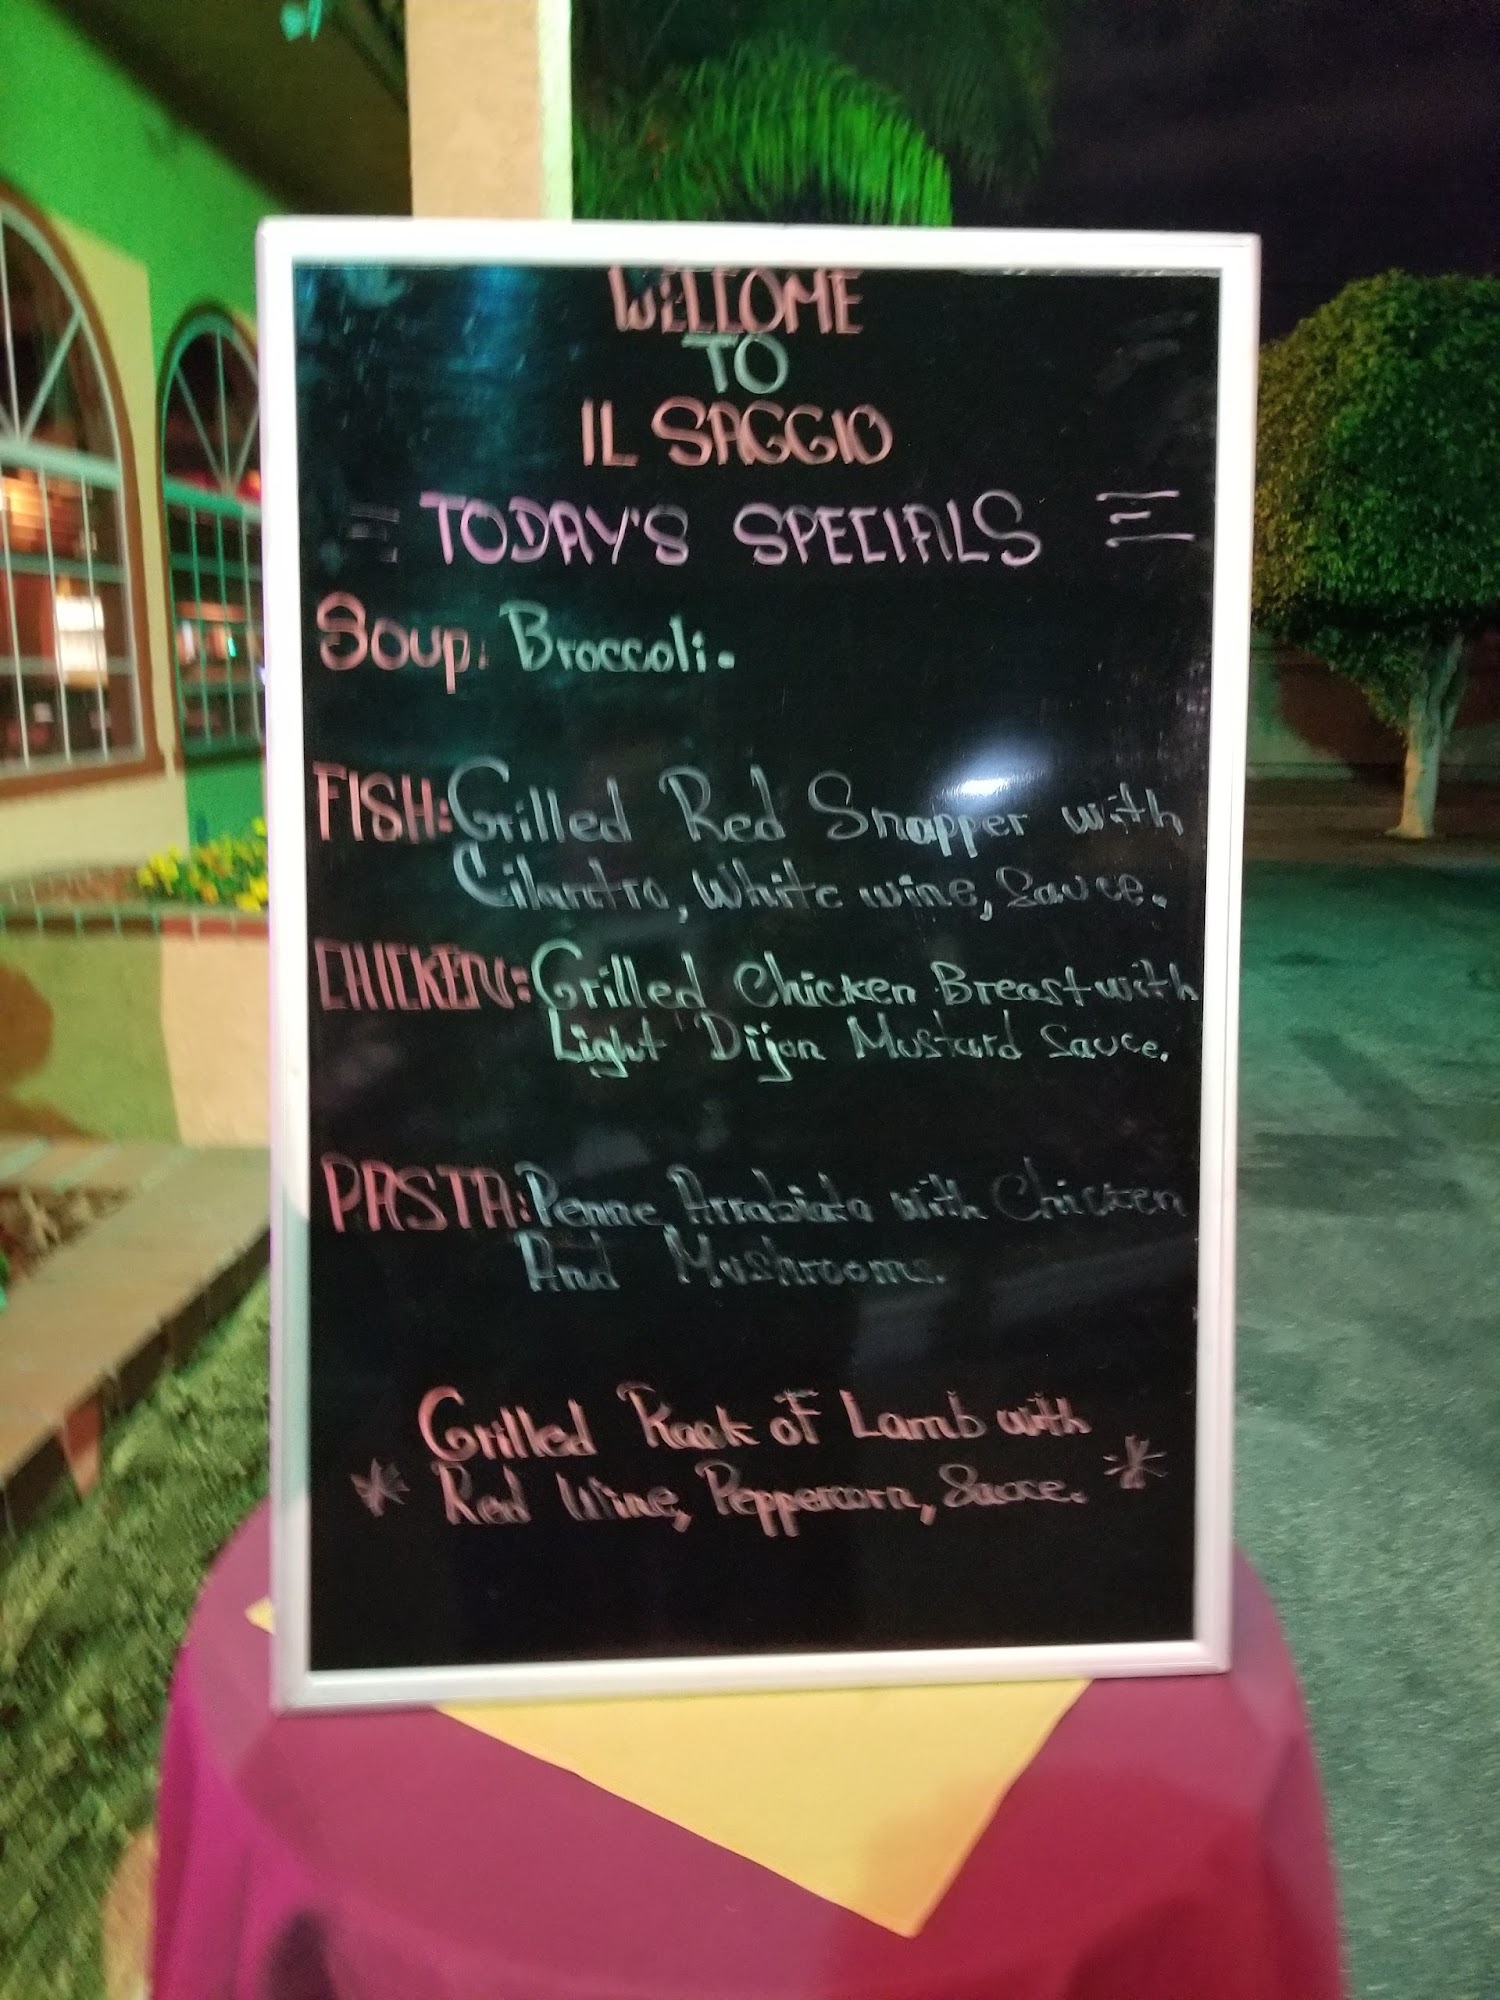 WELCOME
TO
IL SAGGIO
TODAY'S SPECIALS
Soup: Broccoli.
FISH: Grilled Red Snapper with
Cilantro, White wine, Sauce.
CHICKEN: Grilled Chicken Breast with
Light Dijon Mustard Sauce.
PASTA: Penne Arrabiata with Chicken
And Mushrooms.
Grilled Rack of Lamb with
* Red Wine, Peppercorn, Sauce. *